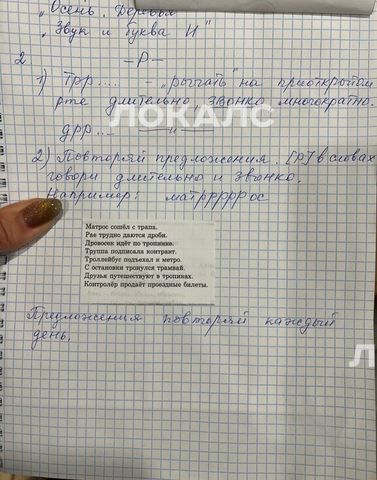 „Осень. Деревья"
„Звук и буква И"
2 —Р—
1) Трр.... - „рычать" на приоткрытом
рте длительно, звонко, многократно.
ЛОКАЛС
дрр... —"—
2) Повторяй предложения. [Р] в словах
говори длительно и звонко.
Например: матррррос
Матрос сошёл с трапа.
Рае трудно даются дроби.
Дровосек идёт по тропинке.
Труппа подписала контракт.
Троллейбус подъехал к метро.
С остановки тронулся трамвай.
Друзья путешествуют в тропиках.
Контролёр продаёт проездные билеты.
Предложения повторяй каждый
день.
Л